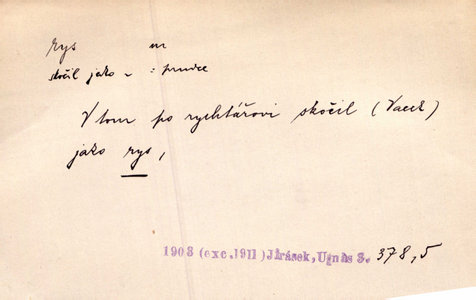 rys m
skočil jako ~ : prudce
V tom po rychtářovi skočil (Vacek)
jako rys,
1903 (exc. 1911) Jirásek, U nás 3. 378,5